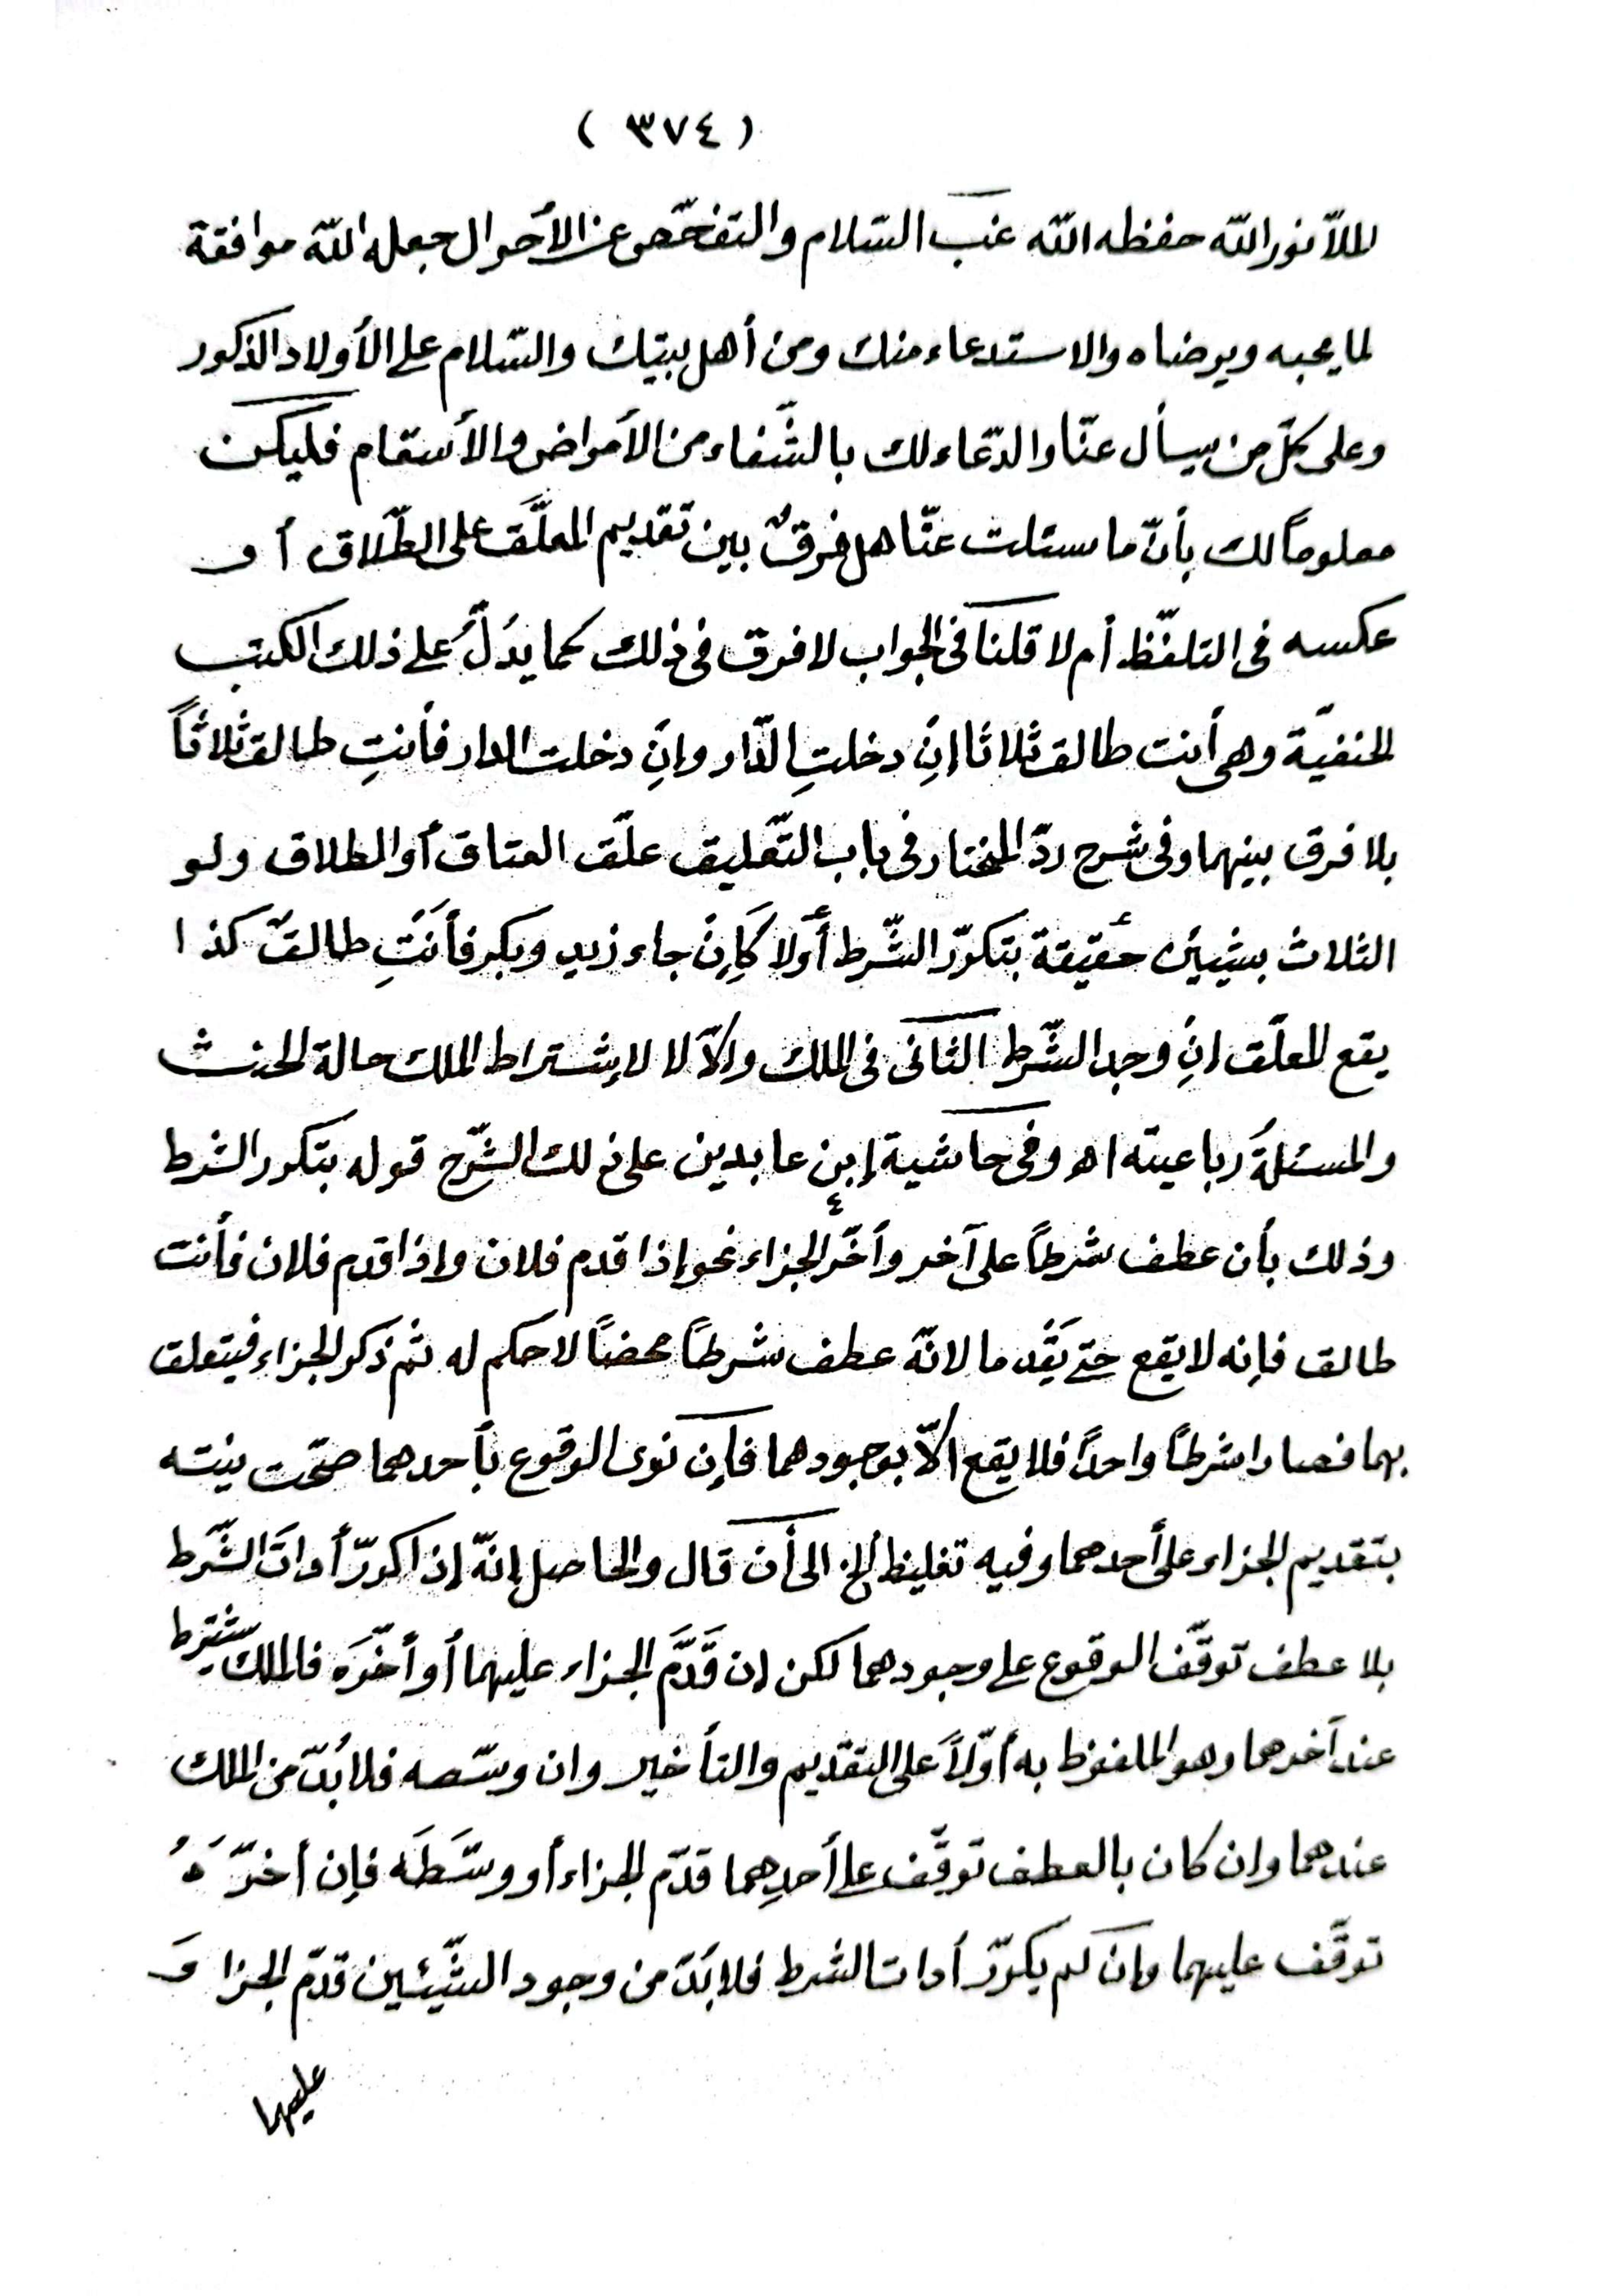 ( ٣٧٤ )
للملّا نور الله حفظه الله غبّ السّلام والتفحّص عن الأحوال جعله الله موافقة
لما يحبه ويرضاه والاستدعاء منك ومن أهل بيتك والسّلام على الأولاد الذكور
وعلى كلّ من يسأل عنّا والدّعاء لك بالشّفاء من الأمراض والأسقام فليكن
معلوماً لك بأنّ ما سئلت عنّا هل فرقٌ بين تقديم المعلَّق على الطّلاق أو
عكسه فى التلفّظ أم لا قلنا فى الجواب لا فرق فى ذلك كما يدُلّ على ذلك الكتب
الحنفيّة وهى أنت طالق ثلاثا إنِ دخلتِ الدّار وإنِ دخلت الدار فأنتِ طالق ثلاثاً
بلا فرق بينهما وفى شرح ردّ المختار فى باب التّعليق علّق العتاق أو الطلاق ولو
الثلاث بشيئين حقيقة بتكرّر الشّرط أوّلا كَإِنْ جاء زيد وبكر فأنتِ طالقٌ كذا
يقع المعلّق انِ وجد الشّرط الثانى فى الملك والّا لا لاِشتراط الملك حالة الحنث
والمسئلةُ رباعيته اهـ وفى حاشية إبن عابدين على ذلك الشّرح قوله بتكرر الشرط
وذلك بأن عطف شرطاً على آخر وأخّر الجزاء نحو إذا قدم فلان وإذا قدم فلان فأنت
طالق فإنه لا يقع حتى يَقْدما لانّه عطف شرطاً محضاً لا حكم له ثم ذكر الجزاء فيتعلق
بهما فصارا شرطاً واحداً فلا يقع الّا بوجودهما فإن نوى الوقوع بأحدهما صحّت نيته
بتقديم الجزاء على أحدهما وفيه تغليظ ألخ الى أن قال والحاصل إنّه إذا كرّر أدات الشّرط
بلا عطف توقّف الوقوع على وجودهما لكن إن قَدَّمَ الجزاء عليهما أو أخّرَه فالملك يشترط
عند آخرهما وهو الملفوظ به أوّلاً على التقديم والتأخير وان وسّصه فلا بُدّ من الملك
عندهما وان كان بالعطف توقّف على أحدِهما قدّم الجزاء أو وسَّطَه فإن أخرّهُ
توقَّف عليهما وإن لم يكرّر أدات الشرط فلا بُدّ من وجود الشّيئين قدّم الجزاءَ
عليهما